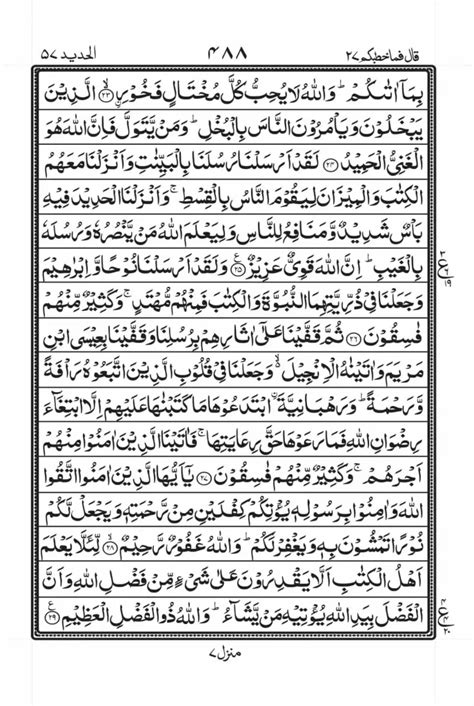 قال فما خطبکم ۲۷ ۴۸۸ الحدید ۵۷
بِمَاۤ اٰتٰىكُمْ ؕ وَاللّٰهُ لَا یُحِبُّ كُلَّ مُخْتَالٍ فَخُوْرِۙ ۝۲۳ الَّذِیْنَ
یَبْخَلُوْنَ وَیَاْمُرُوْنَ النَّاسَ بِالْبُخْلِ ؕ وَمَنْ یَّتَوَلَّ فَاِنَّ اللّٰهَ هُوَ
الْغَنِیُّ الْحَمِیْدُ ۝۲۴ لَقَدْ اَرْسَلْنَا رُسُلَنَا بِالْبَیِّنٰتِ وَاَنْزَلْنَا مَعَهُمُ
الْكِتٰبَ وَالْمِیْزَانَ لِیَقُوْمَ النَّاسُ بِالْقِسْطِ ۚ وَاَنْزَلْنَا الْحَدِیْدَ فِیْهِ
بَاْسٌ شَدِیْدٌ وَّمَنَافِعُ لِلنَّاسِ وَلِیَعْلَمَ اللّٰهُ مَنْ یَّنْصُرُهٗ وَرُسُلَهٗ
بِالْغَیْبِ ؕ اِنَّ اللّٰهَ قَوِیٌّ عَزِیْزٌ ۝۲۵ وَلَقَدْ اَرْسَلْنَا نُوْحًا وَّاِبْرٰهِیْمَ
وَجَعَلْنَا فِیْ ذُرِّیَّتِهِمَا النُّبُوَّةَ وَالْكِتٰبَ فَمِنْهُمْ مُّهْتَدٍ ۚ وَكَثِیْرٌ مِّنْهُمْ
فٰسِقُوْنَ ۝۲۶ ثُمَّ قَفَّیْنَا عَلٰۤی اٰثَارِهِمْ بِرُسُلِنَا وَقَفَّیْنَا بِعِیْسَی ابْنِ
مَرْیَمَ وَاٰتَیْنٰهُ الْاِنْجِیْلَ ۙ۬ وَجَعَلْنَا فِیْ قُلُوْبِ الَّذِیْنَ اتَّبَعُوْهُ رَاْفَةً
وَّرَحْمَةً ؕ وَرَهْبَانِیَّةَ ۟ابْتَدَعُوْهَا مَا كَتَبْنٰهَا عَلَیْهِمْ اِلَّا ابْتِغَآءَ
رِضْوَانِ اللّٰهِ فَمَا رَعَوْهَا حَقَّ رِعَایَتِهَا ۚ فَاٰتَیْنَا الَّذِیْنَ اٰمَنُوْا مِنْهُمْ
اَجْرَهُمْ ۚ وَكَثِیْرٌ مِّنْهُمْ فٰسِقُوْنَ ۝۲۷ یٰۤاَیُّهَا الَّذِیْنَ اٰمَنُوا اتَّقُوا
اللّٰهَ وَاٰمِنُوْا بِرَسُوْلِهٖ یُؤْتِكُمْ كِفْلَیْنِ مِنْ رَّحْمَتِهٖ وَیَجْعَلْ لَّكُمْ
نُوْرًا تَمْشُوْنَ بِهٖ وَیَغْفِرْ لَكُمْ ؕ وَاللّٰهُ غَفُوْرٌ رَّحِیْمٌ ۝۲۸ لِّئَلَّا یَعْلَمَ
اَهْلُ الْكِتٰبِ اَلَّا یَقْدِرُوْنَ عَلٰی شَیْءٍ مِّنْ فَضْلِ اللّٰهِ وَاَنَّ
الْفَضْلَ بِیَدِ اللّٰهِ یُؤْتِیْهِ مَنْ یَّشَآءُ ؕ وَاللّٰهُ ذُو الْفَضْلِ الْعَظِیْمِ ۝۲۹
منزل ۷